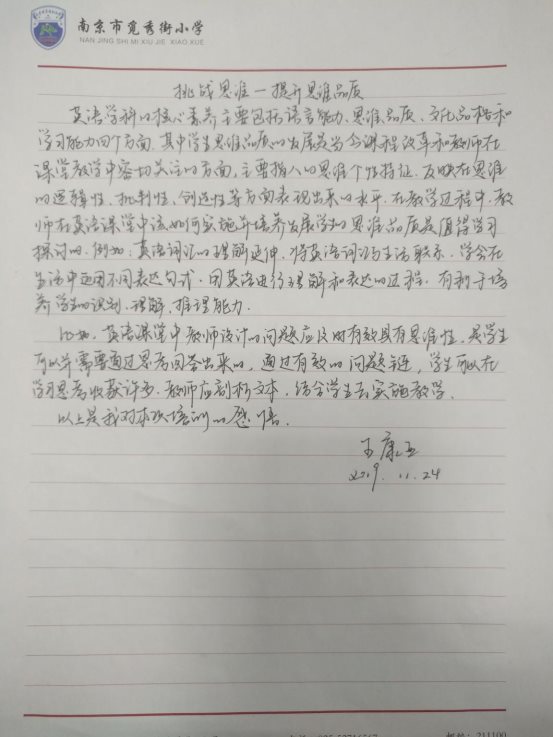 南京市觅秀街小学
NAN JING SHI MI XIU JIE XIAO XUE
挑战思维—提升思维品质
英语学科的核心素养主要包括语言能力、思维品质、文化品格和
学习能力四个方面。其中学生思维品质的发展是当今课程改革和教师在
课堂教学中密切关注的方面,主要指人的思维个性特征,反映在思维
的逻辑性、批判性、创造性等方面表现出来的水平。在教学过程中,教
师在英语课堂中该如何实施并培养发展学生的思维品质是值得学习
探讨的。例如:英语词汇的理解延伸,将英语词汇与生活联系,学会在
生活中运用不同表达句式。用英语进行理解和表达的过程,有利于培
养学生的识别、理解、推理能力。
比如,英语课堂中教师设计的问题应及时有效且有思维性,是学生
可以并需要通过思考回答出来的,通过有效的问题链,学生可以在
学习思考收获许多。教师应剖析文本,结合学生去实施教学。
以上是我对本次培训的感悟。
王康
2019.11.24
211100